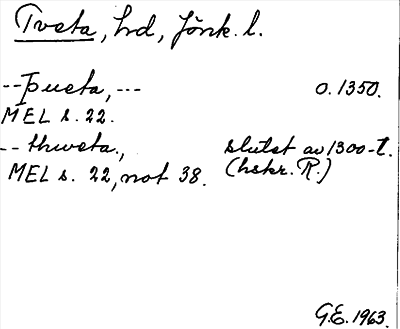 Tveta, hd, Jönk. l.
--þueta, --- o. 1350.
MEL s. 22.
-- thweta., slutet av 1300-t.
MEL s. 22, not 38. (hskr. R.)
G.E. 1963.